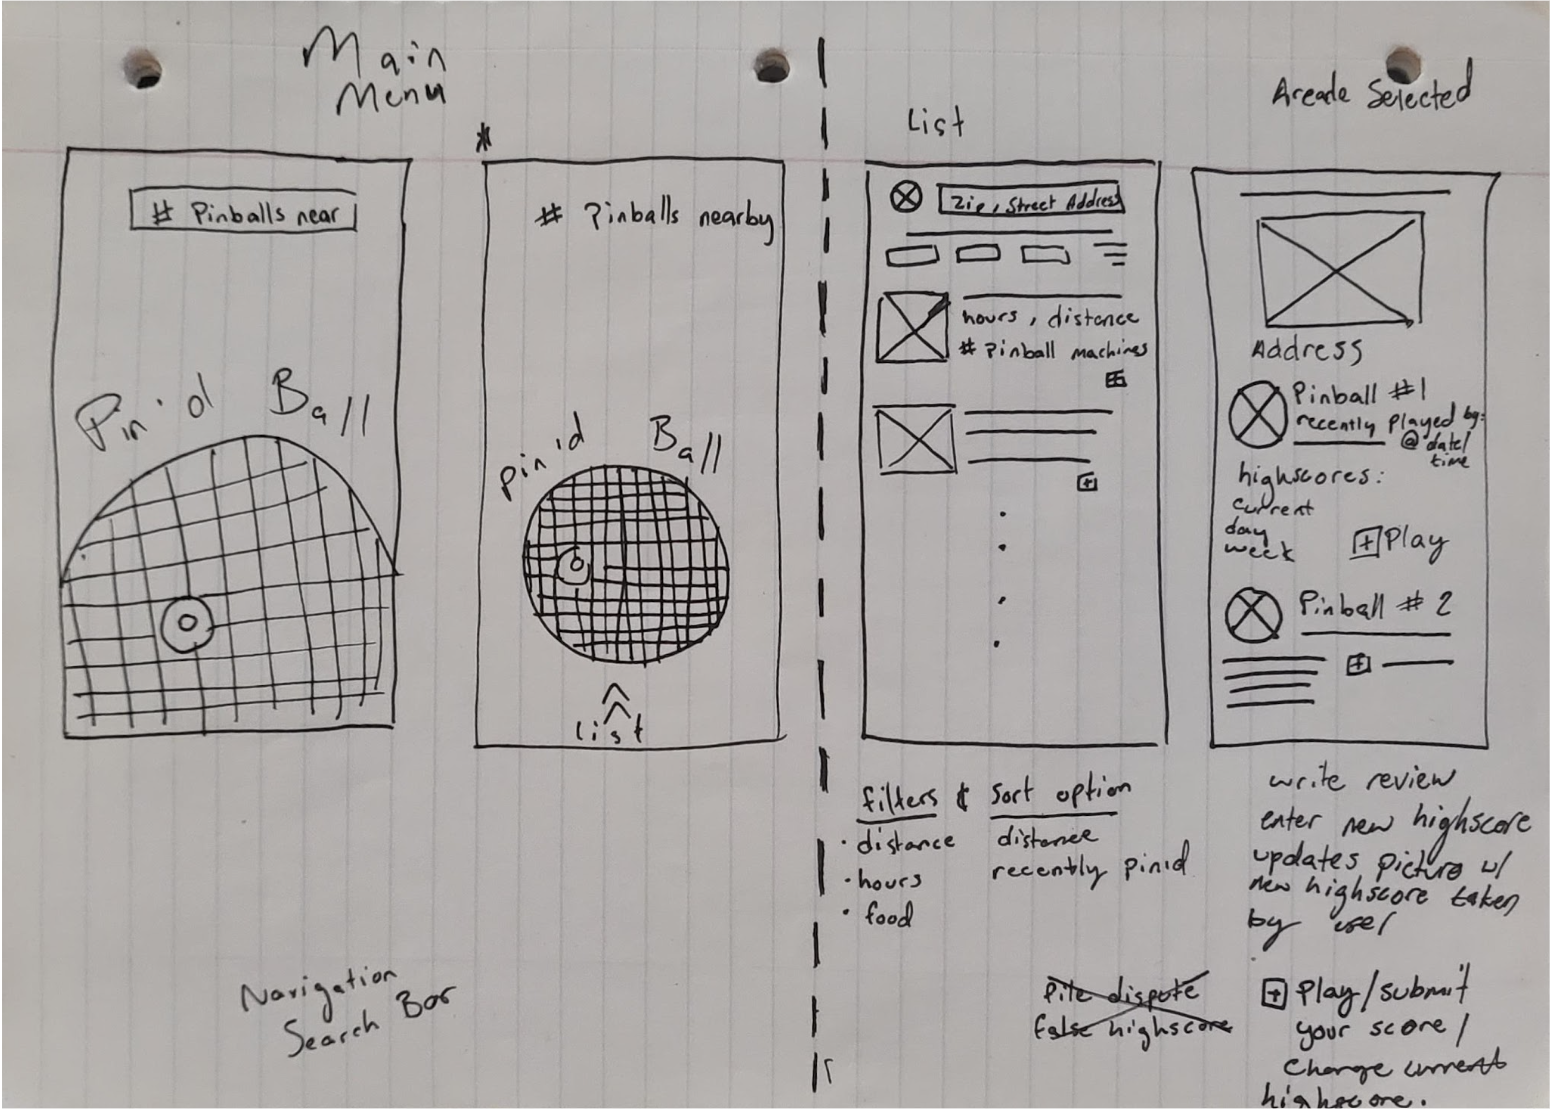 Main
Menu
# Pinballs near
Pin'd Ball
*
# Pinballs nearby
Pin'd Ball
List
Navigation
Search Bar
List
Zip, Street Address
hours, distance
# Pinball machines
filters & Sort option
• distance
• hours
• food
distance
recently pin'd
File dispute
False highscore
Arcade Selected
Address
Pinball #1
recently played by:
@ date/
time
highscores:
current
day
week
+ Play
Pinball # 2
write review
enter new highscore
updates picture w/
new highscore taken
by user
+ Play/submit
your score/
Change current
highscore.